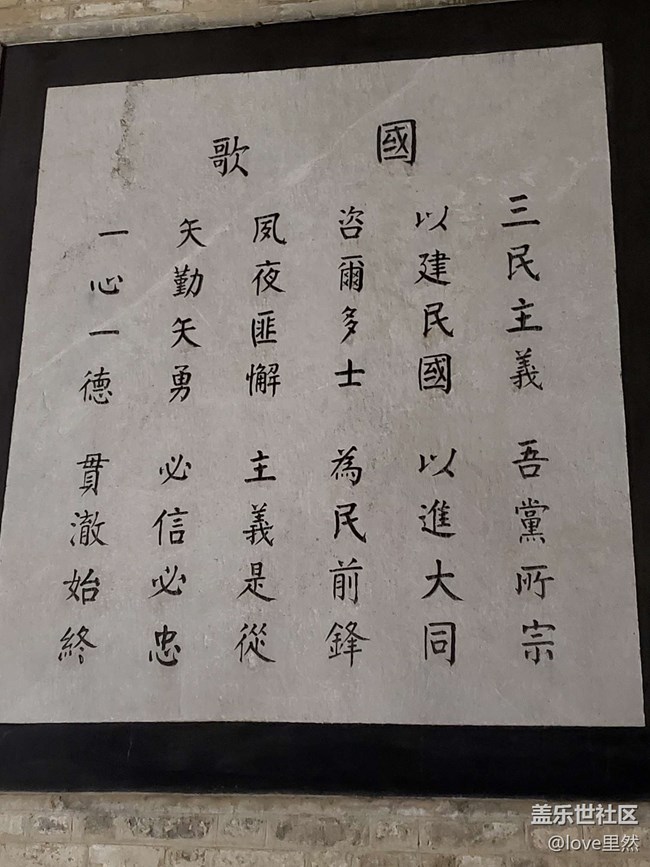 國歌
三民主義 吾黨所宗
以建民國 以進大同
咨爾多士 為民前鋒
夙夜匪懈 主義是從
矢勤矢勇 必信必忠
一心一德 貫澈始終
盖乐世社区
@love里然